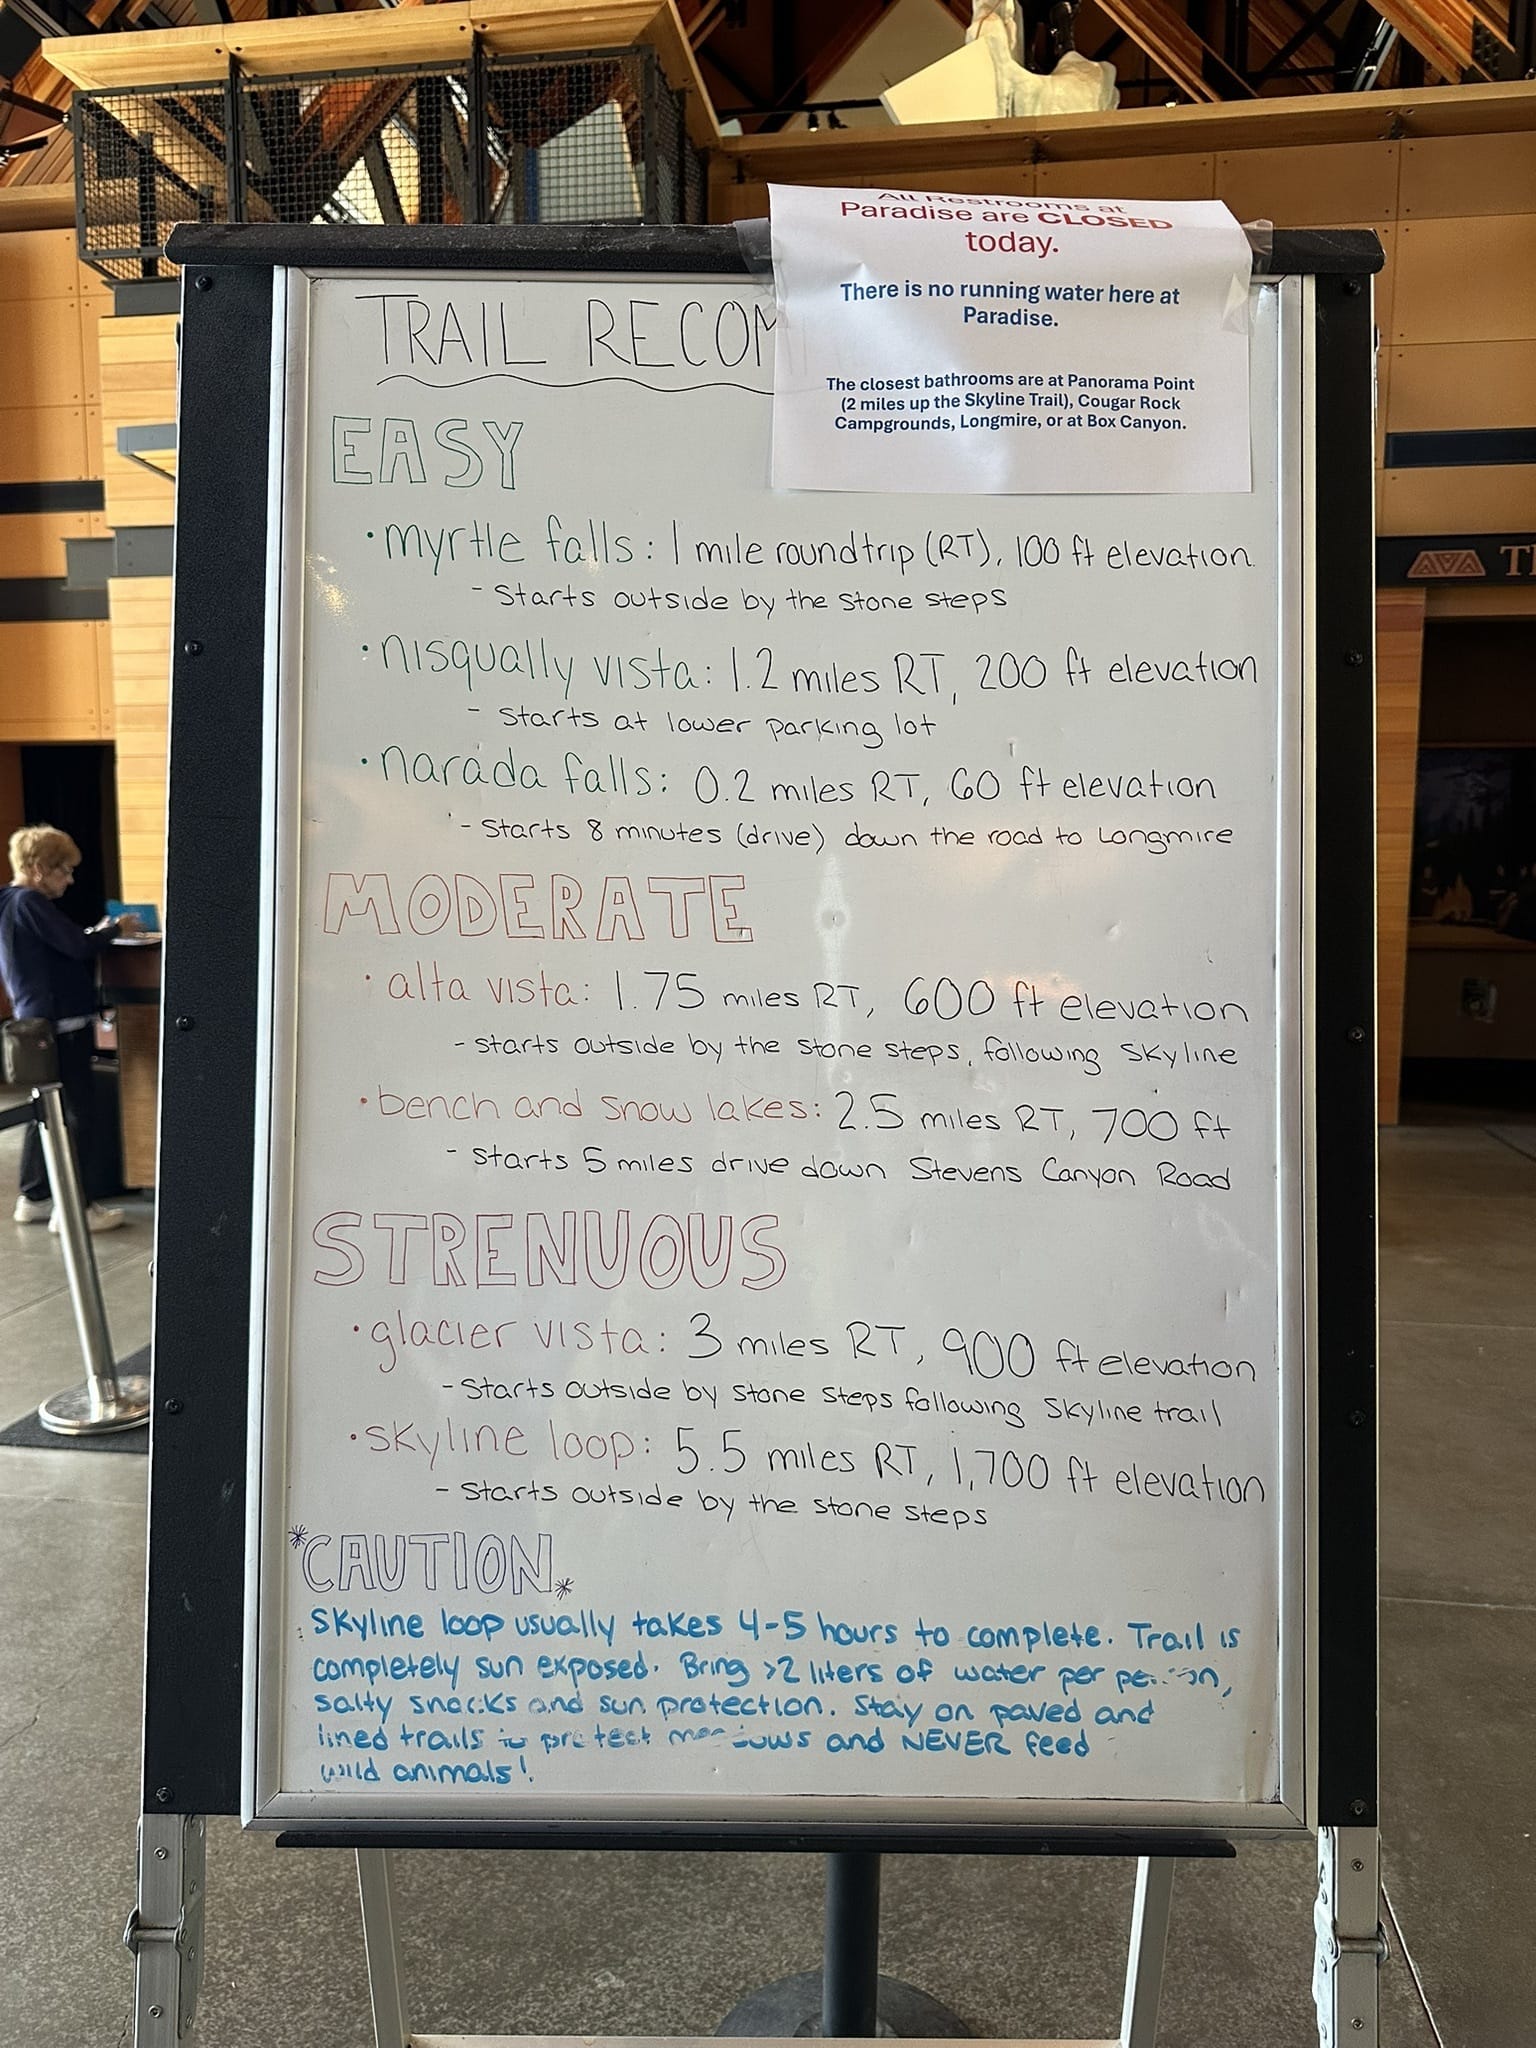 All Restrooms at
Paradise are CLOSED
today.
There is no running water here at
Paradise.
The closest bathrooms are at Panorama Point
(2 miles up the Skyline Trail), Cougar Rock
Campgrounds, Longmire, or at Box Canyon.
TRAIL RECOM
EASY
• myrtle falls: 1 mile roundtrip (RT), 100 ft elevation
- starts outside by the stone steps
• nisqually vista: 1.2 miles RT, 200 ft elevation
- starts at lower parking lot
• narada falls: 0.2 miles RT, 60 ft elevation
- starts 8 minutes (drive) down the road to Longmire
MODERATE
• alta vista: 1.75 miles RT, 600 ft elevation
- starts outside by the stone steps, following Skyline
• bench and snow lakes: 2.5 miles RT, 700 ft
- starts 5 miles drive down Stevens Canyon Road
STRENUOUS
• glacier vista: 3 miles RT, 900 ft elevation
- starts outside by stone steps following Skyline trail
• skyline loop: 5.5 miles RT, 1,700 ft elevation
- starts outside by the stone steps
*CAUTION*
Skyline loop usually takes 4-5 hours to complete. Trail is
completely sun exposed. Bring >2 liters of water per person,
salty snacks and sun protection. Stay on paved and
lined trails to protect meadows and NEVER feed
wild animals!